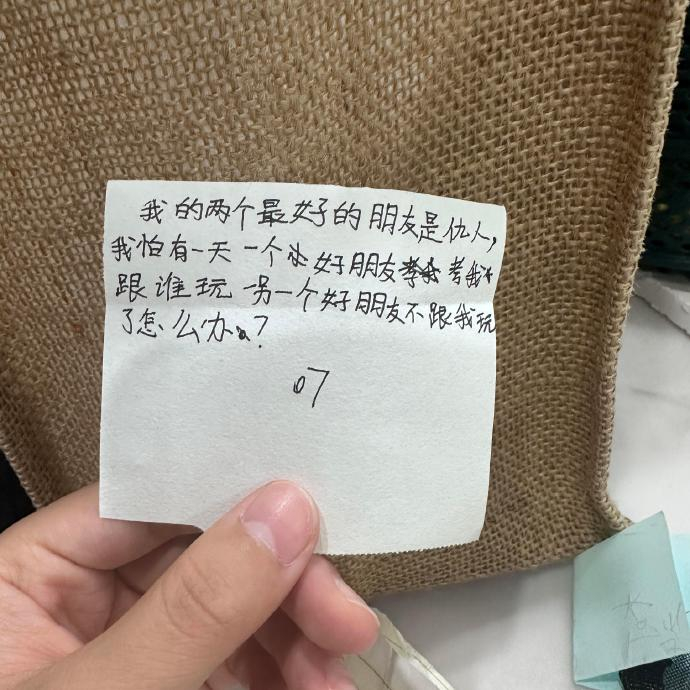 我的两个最好的朋友是仇人，
我怕有一天一个好朋友考我
跟谁玩另一个好朋友不跟我玩
了怎么办？
07